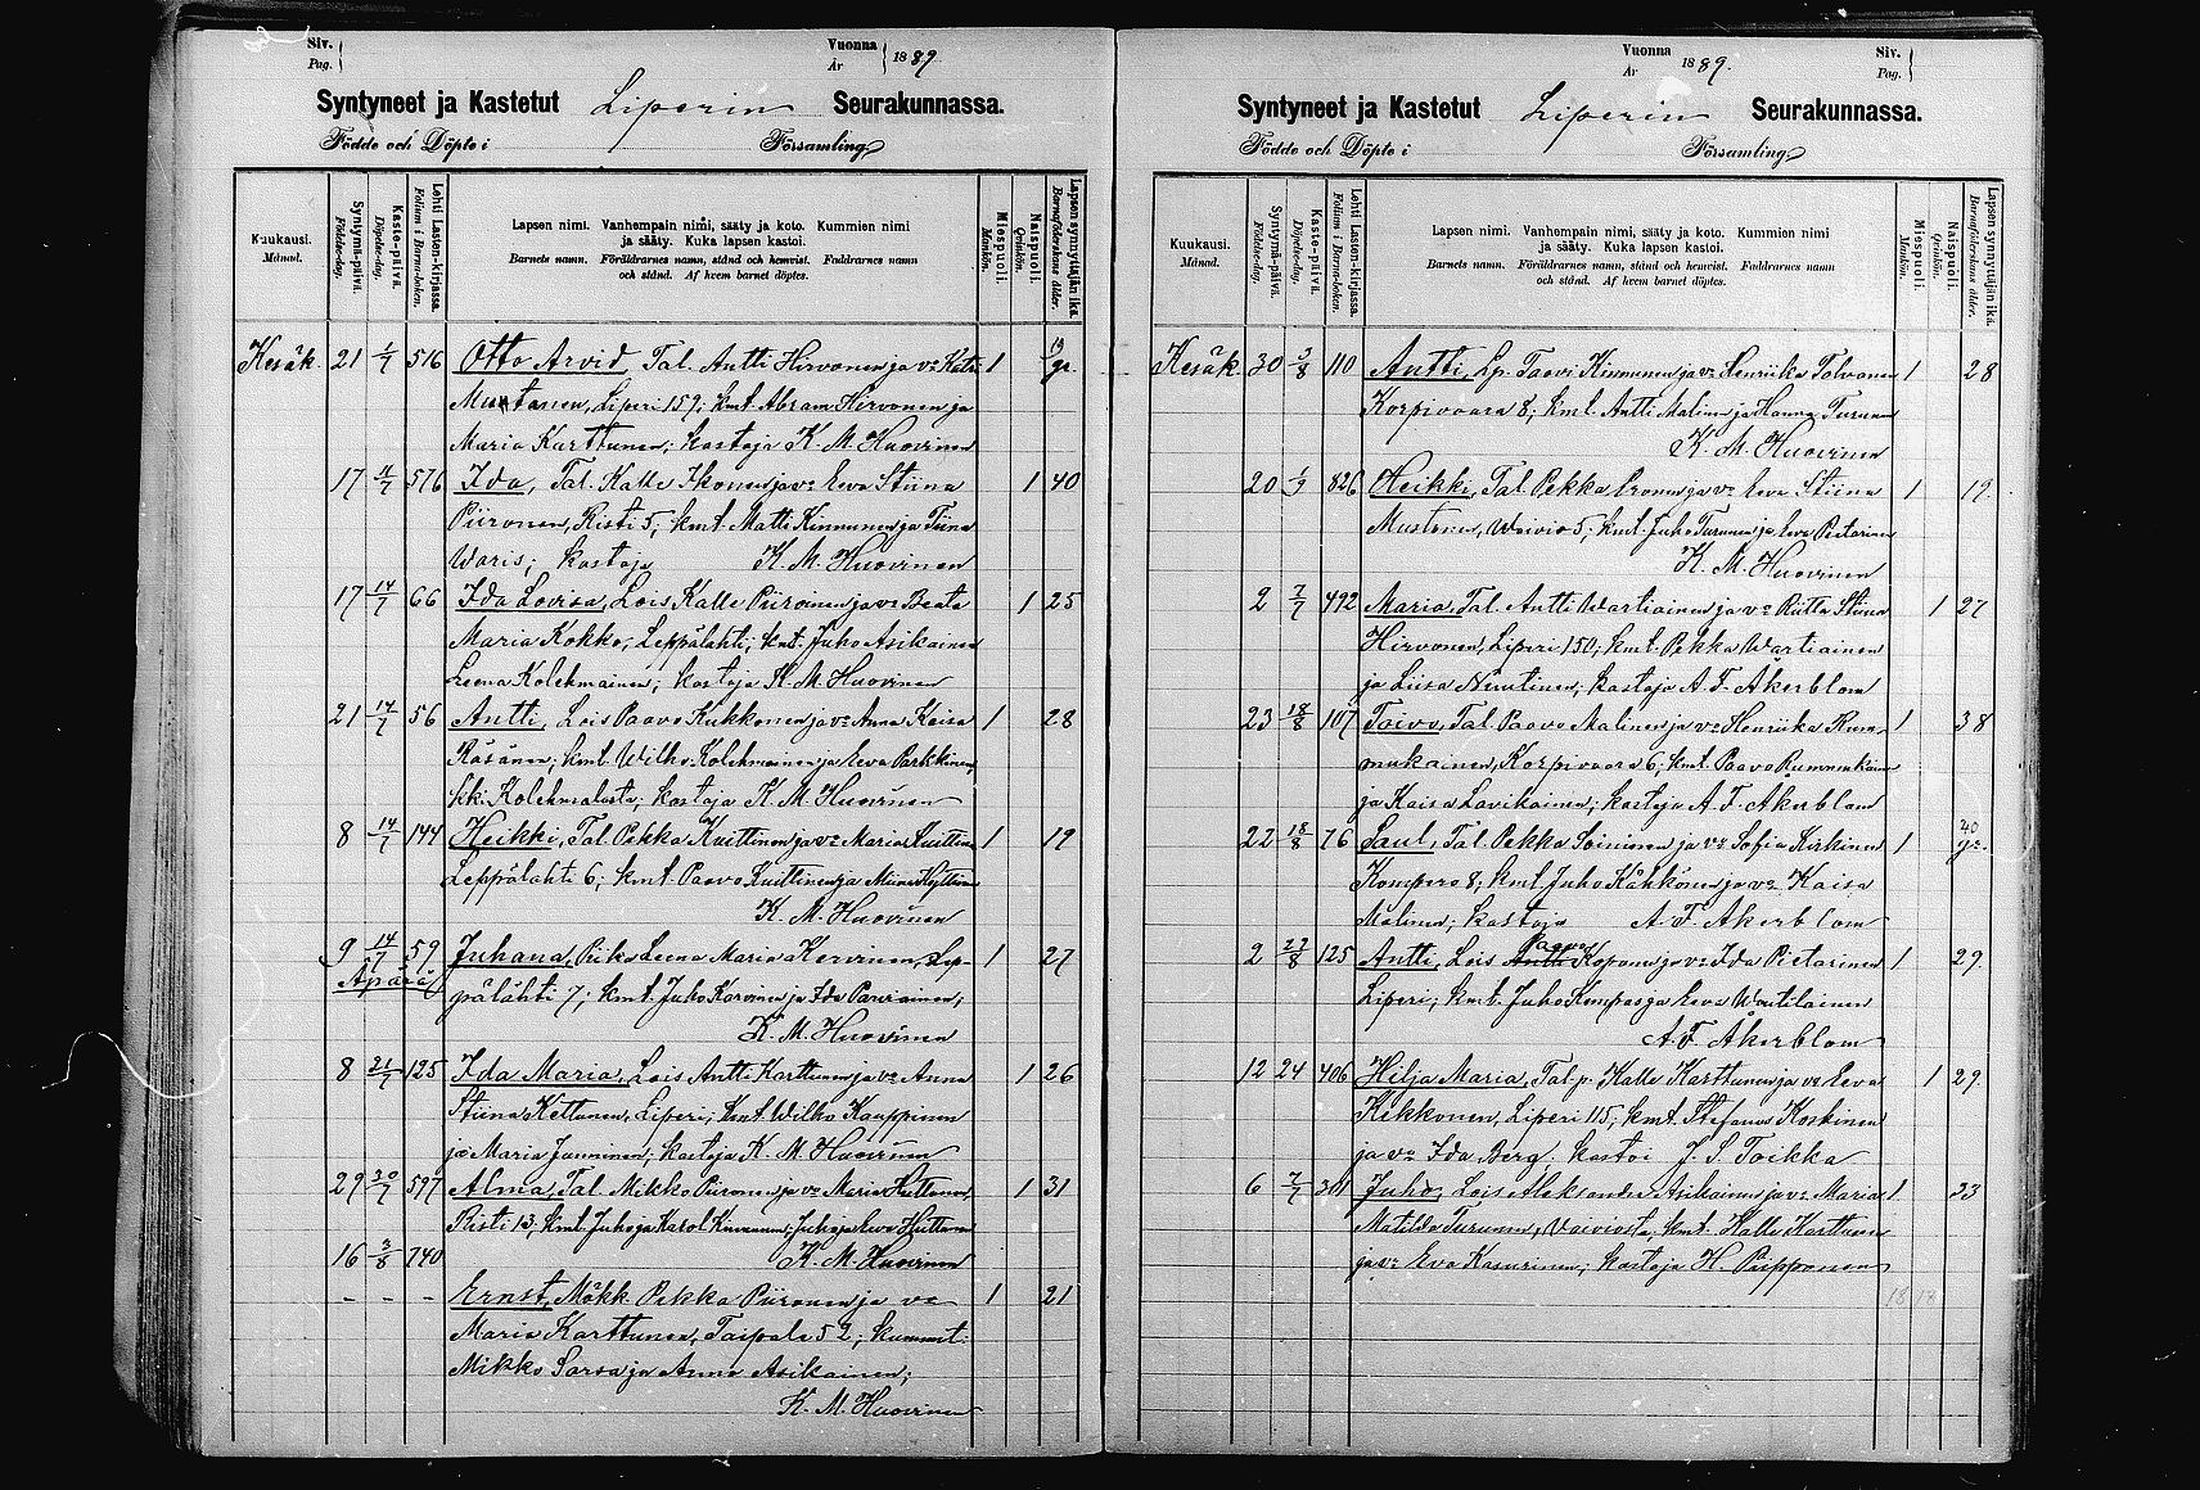 Siv.
Pag.
Vuonna
År
1889.
Syntyneet ja Kastetut Liperin Seurakunnassa.
Födde och Döpte i Församling.
Kuukausi.
Månad.
Syntymä-päivä.
Födelse-dag.
Kaste-päivä.
Döpelse-dag.
Lehti Lasten-kirjassa.
Folium i Barna-boken.
Lapsen nimi. Vanhempain nimi, sääty ja koto. Kummien nimi
ja sääty. Kuka lapsen kastoi.
Barnets namn. Föräldrarnes namn, stånd och hemvist. Faddrarnes namn
och stånd. Af hvem barnet döptes.
Miespuoli.
Mankön.
Naispuoli.
Qvinkön.
Lapsen synnyttäjän ikä.
Barnaföderskans ålder.
Kesäk. 21 1/7 516 Otto Arvid, Tal. Antti Hirvonen ja vo Katr. 1 19 gr.
Mustonen, Liperi 159; kmt. Abram Hirvonen ja
Maria Karttunen; kastaja K. M. Huovinen
17 4/7 576 Ida, Tal. Kalle Ikonen ja vo Eeva Stiina 1 40
Piironen, Risti 5; kmt. Matti Kinnunen ja Tiina
Waris; kastaja K. M. Huovinen
17 14/7 66 Ida Lovisa, Lois Kalle Piiroinen ja vo Beata 1 25
Maria Kokko, Leppälahti; kmt. Juho Asikainen
Leena Kolehmainen; kastaja K. M. Huovinen
21 14/7 56 Antti, Lois Paavo Kukkonen ja vo Anna Kaisa 1 28
Räsänen; kmt. Wilho Kolehmainen ja Eeva Parkkinen,
kk: Kolehmalasta; kastaja K. M. Huovinen
8 14/7 144 Heikki, Tal. Pekka Kuittinen ja vo Maria Kuittinen 1 19
Leppälahti 6; kmt. Paavo Kuittinen ja Miina
K. M. Huovinen
9 14/7 59 Juhana, Piika Leena Maria Kervinen, Lep- 1 27
Äpärä
pälähti 7; kmt. Juho Karvinen ja Ida Parviainen;
K. M. Huovinen
8 21/7 125 Ida Maria, Lois Antti Karttunen ja vo Anna 1 26
Stiina Kettunen, Liperi; kmt. Wilho Kauppinen
ja Maria Janninen; kastaja K. M. Huovinen
29 30/7 597 Alma, Tal. Mikko Piironen ja vo Maria Huttunen, 1 31
Risti 13; kmt. Juho ja Karol. Kinnunen; Juho ja Eeva Huttunen
16 3/8 740 K. M. Huovinen
- - - Ernst, Mökk. Pekka Piironen ja vo 1 21
Maria Karttunen, Taipale 52; kummit:
Mikko Sarsa ja Anna Asikainen;
K. M. Huovinen
Vuonna
År
1889.
Siv.
Pag.
Syntyneet ja Kastetut Liperin Seurakunnassa.
Födde och Döpte i Församling.
Kuukausi.
Månad.
Syntymä-päivä.
Födelse-dag.
Kaste-päivä.
Döpelse-dag.
Lehti Lasten-kirjassa.
Folium i Barna-boken.
Lapsen nimi. Vanhempain nimi, sääty ja koto. Kummien nimi
ja sääty. Kuka lapsen kastoi.
Barnets namn. Föräldrarnes namn, stånd och hemvist. Faddrarnes namn
och stånd. Af hvem barnet döptes.
Miespuoli.
Mankön.
Naispuoli.
Qvinkön.
Lapsen synnyttäjän ikä.
Barnaföderskans ålder.
Kesäk. 30 3/8 110 Antti, Lp. Taavi Kinnunen ja vo Henriika Tolvanen 1 28
Korpivaara 8; kmt. Antti Malinen ja Hanna Turunen
K. M. Huovinen
20 1/9 826 Heikki, Tal. Pekka Eronen ja vo Eeva Stiina 1 19.
Mustonen, Waivio 5; kmt. Juho Turunen ja Eeva Pietarinen
K. M. Huovinen
2 7/7 492 Maria, Tal. Antti Wartiainen ja vo Riitta Stiina 1 27
Hirvonen, Liperi 150; kmt. Pekka Wartiainen
ja Liisa Nuutinen; kastaja A. F. Åkerblom
23 18/8 107 Toivo, Tal. Paavo Malinen ja vo Henriika Rum- 1 38
mukainen, Korpivaara 6; kmt. Paavo Rummukainen
ja Kaisa Lavikainen; kastaja A. F. Åkerblom
22 18/8 76 Saul, Tal. Pekka Soininen ja vo Sofia Kirkinen 1 40 gr.
Kompero 8; kmt. Juho Kähkönen ja vo Kaisa
Malinen; kastaja A. F. Åkerblom
2 22/8 125 Antti, Lois Antti Paavo Koponen ja vo Ida Pietarinen 1 29.
Liperi; kmt. Juho Kompas ja Eeva Woutilainen
A. F. Åkerblom
12 24 406 Hilja Maria, Tal. p. Kalle Karttunen ja vo Eeva 1 29.
Kekkonen, Liperi 115; kmt. Stefanus Koskinen
ja vo Ida Berg; kastoi J. S. Toikka
6 7/7 301 Juho, Lois Aleksander Asikainen ja vo Maria 1. 23
Matilda Turunen, Vaiviosta; kmt. Kalle Karttunen
ja vo Eva Kasurinen; kastaja H. Piipponen
18 17